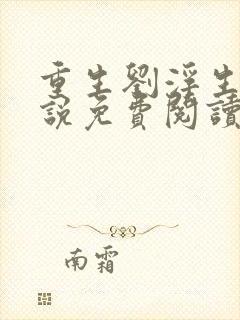 重生劉淫生
說免費閱讀
南霜